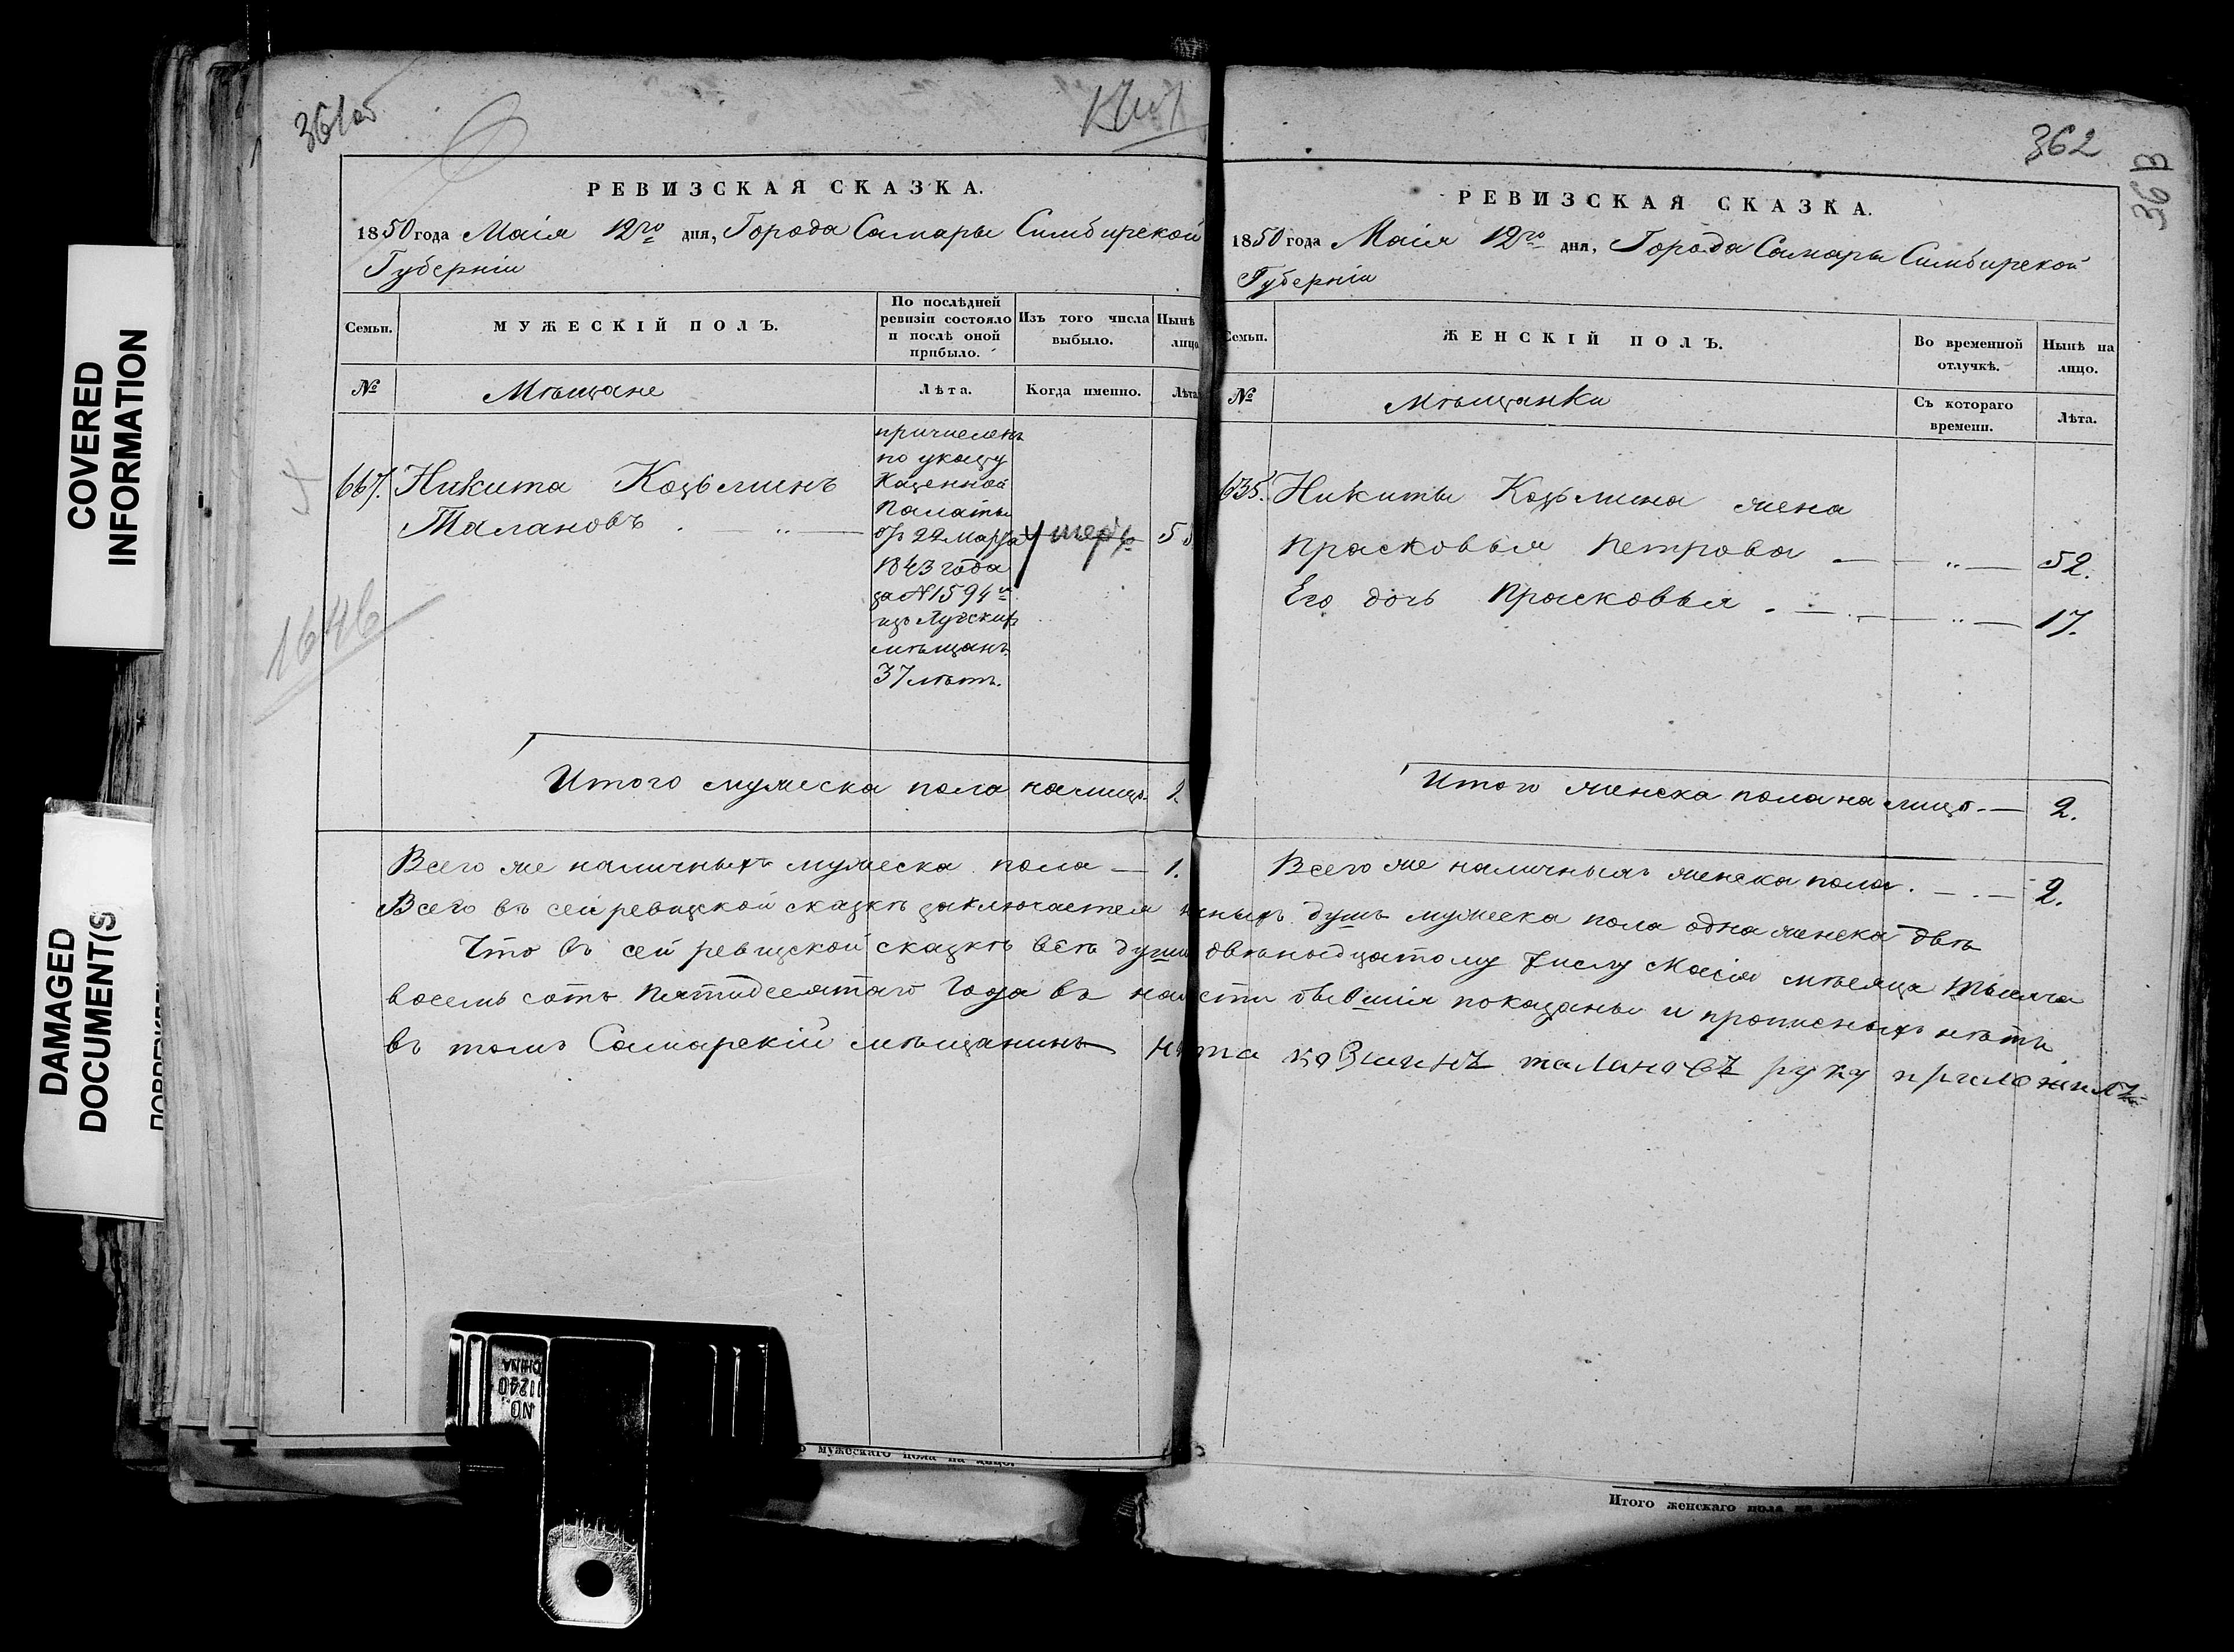 361об
РЕВИЗСКАЯ СКАЗКА.
1850 года Маія 12го дня, Города Самары Симбирской
Губерніи
Семьи.
МУЖЕСКІЙ ПОЛЪ.
По послѣдней
ревизіи состояло
и послѣ оной
прибыло.
Изъ того числа
выбыло.
Нынѣ
лицо
№
Мѣщане
Лѣта.
Когда именно.
Лѣта
667. Никита Козьминъ
Талановъ
причисленъ
по указу
Казенной
Палаты
отъ 22 Марта
1843 года
за №1594м
изъ Лугскихъ
мѣщанъ.
37 лѣтъ.
1646
Итого мужеска пола налицо
Всего же наличныхъ мужеска пола — 1.
362
363
РЕВИЗСКАЯ СКАЗКА.
1850 года Маія 12го дня, Города Самары Симбирской
Губерніи
Семьи.
ЖЕНСКІЙ ПОЛЪ.
Во временной
отлучкѣ.
Нынѣ на
лицо.
№
Мѣщанки
Съ котораго
времени.
Лѣта.
635. Никиты Козьмина жена
Прасковья Петрова — „ — 52.
Его дочь Прасковья — „ — 17.
Итого женска пола на лицо. — 2.
Всего же наличныхъ женска пола. — 2.
Всего въ сей ревизской сказкѣ заключается душъ мужеска пола одна женска двѣ
Что въ сей ревизской сказкѣ всѣ души двѣнадцатому числу Маія мѣсяца тысяча
восемь сотъ пятидесятаго года въ бывшія показаны и прописныхъ нѣтъ
въ томъ Самарскій мѣщанинъ козминъ талановъ руку приложилъ
мужескаго пола на лицо.
Итого женскаго пола на
COVERED
INFORMATION
DAMAGED
DOCUMENT(S
NO.
11240
CHINA